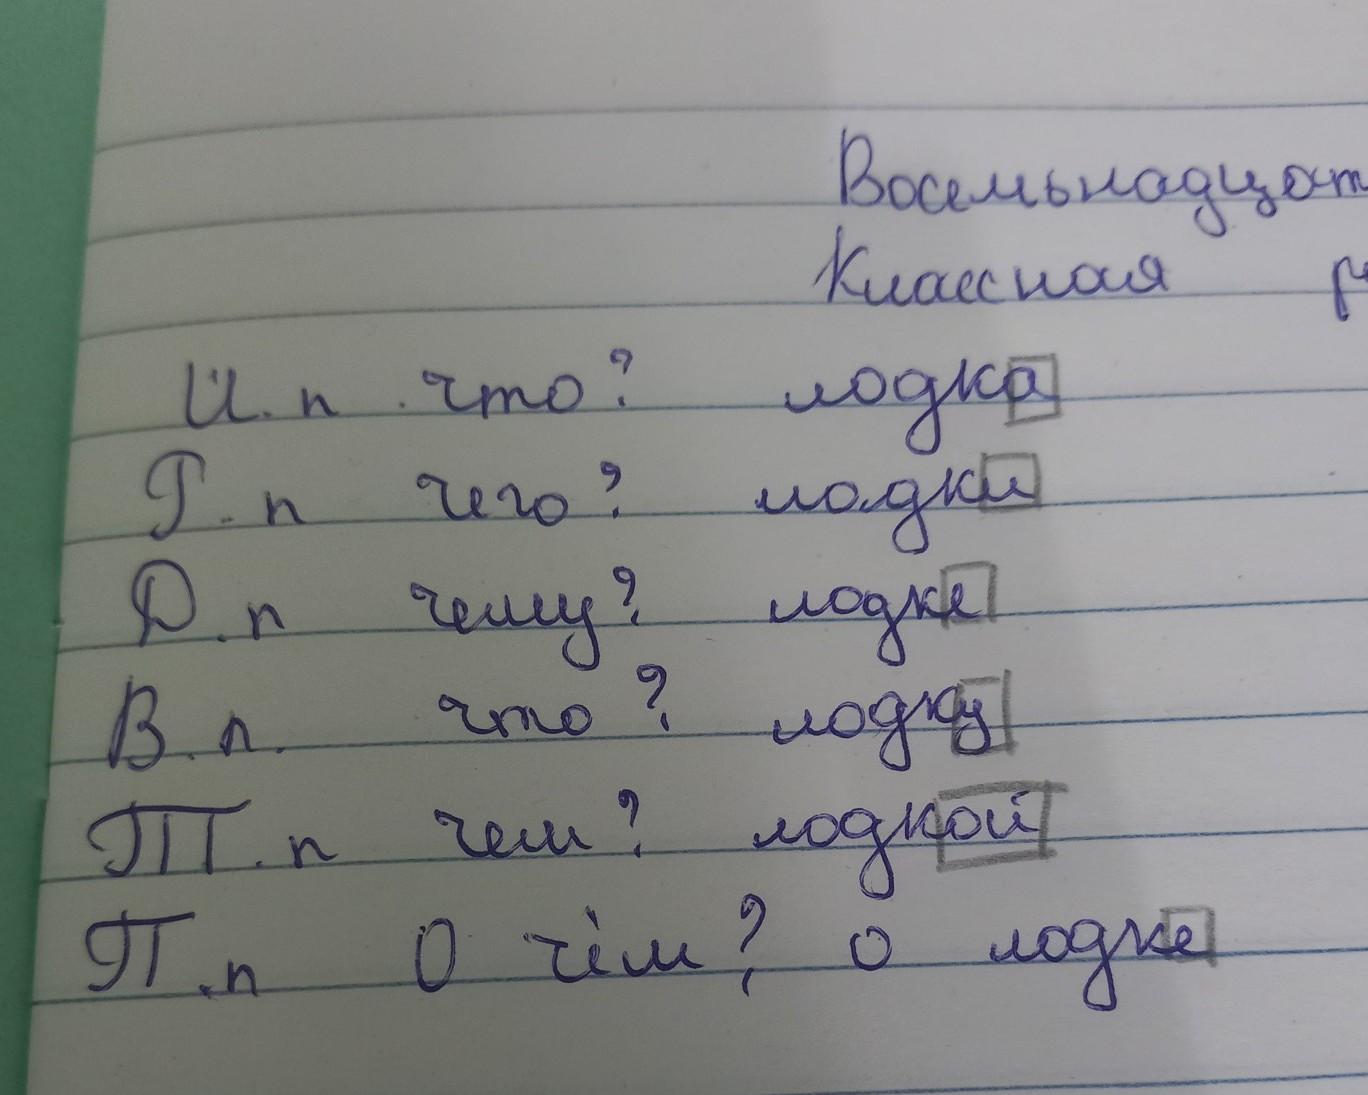 Восемьнадцат
Классная р
И.п что? лодка
Г.п чего? лодки
Д.п чему? лодке
В.п. что? лодку
Т.п чем? лодкой
П.п О чём? о лодке